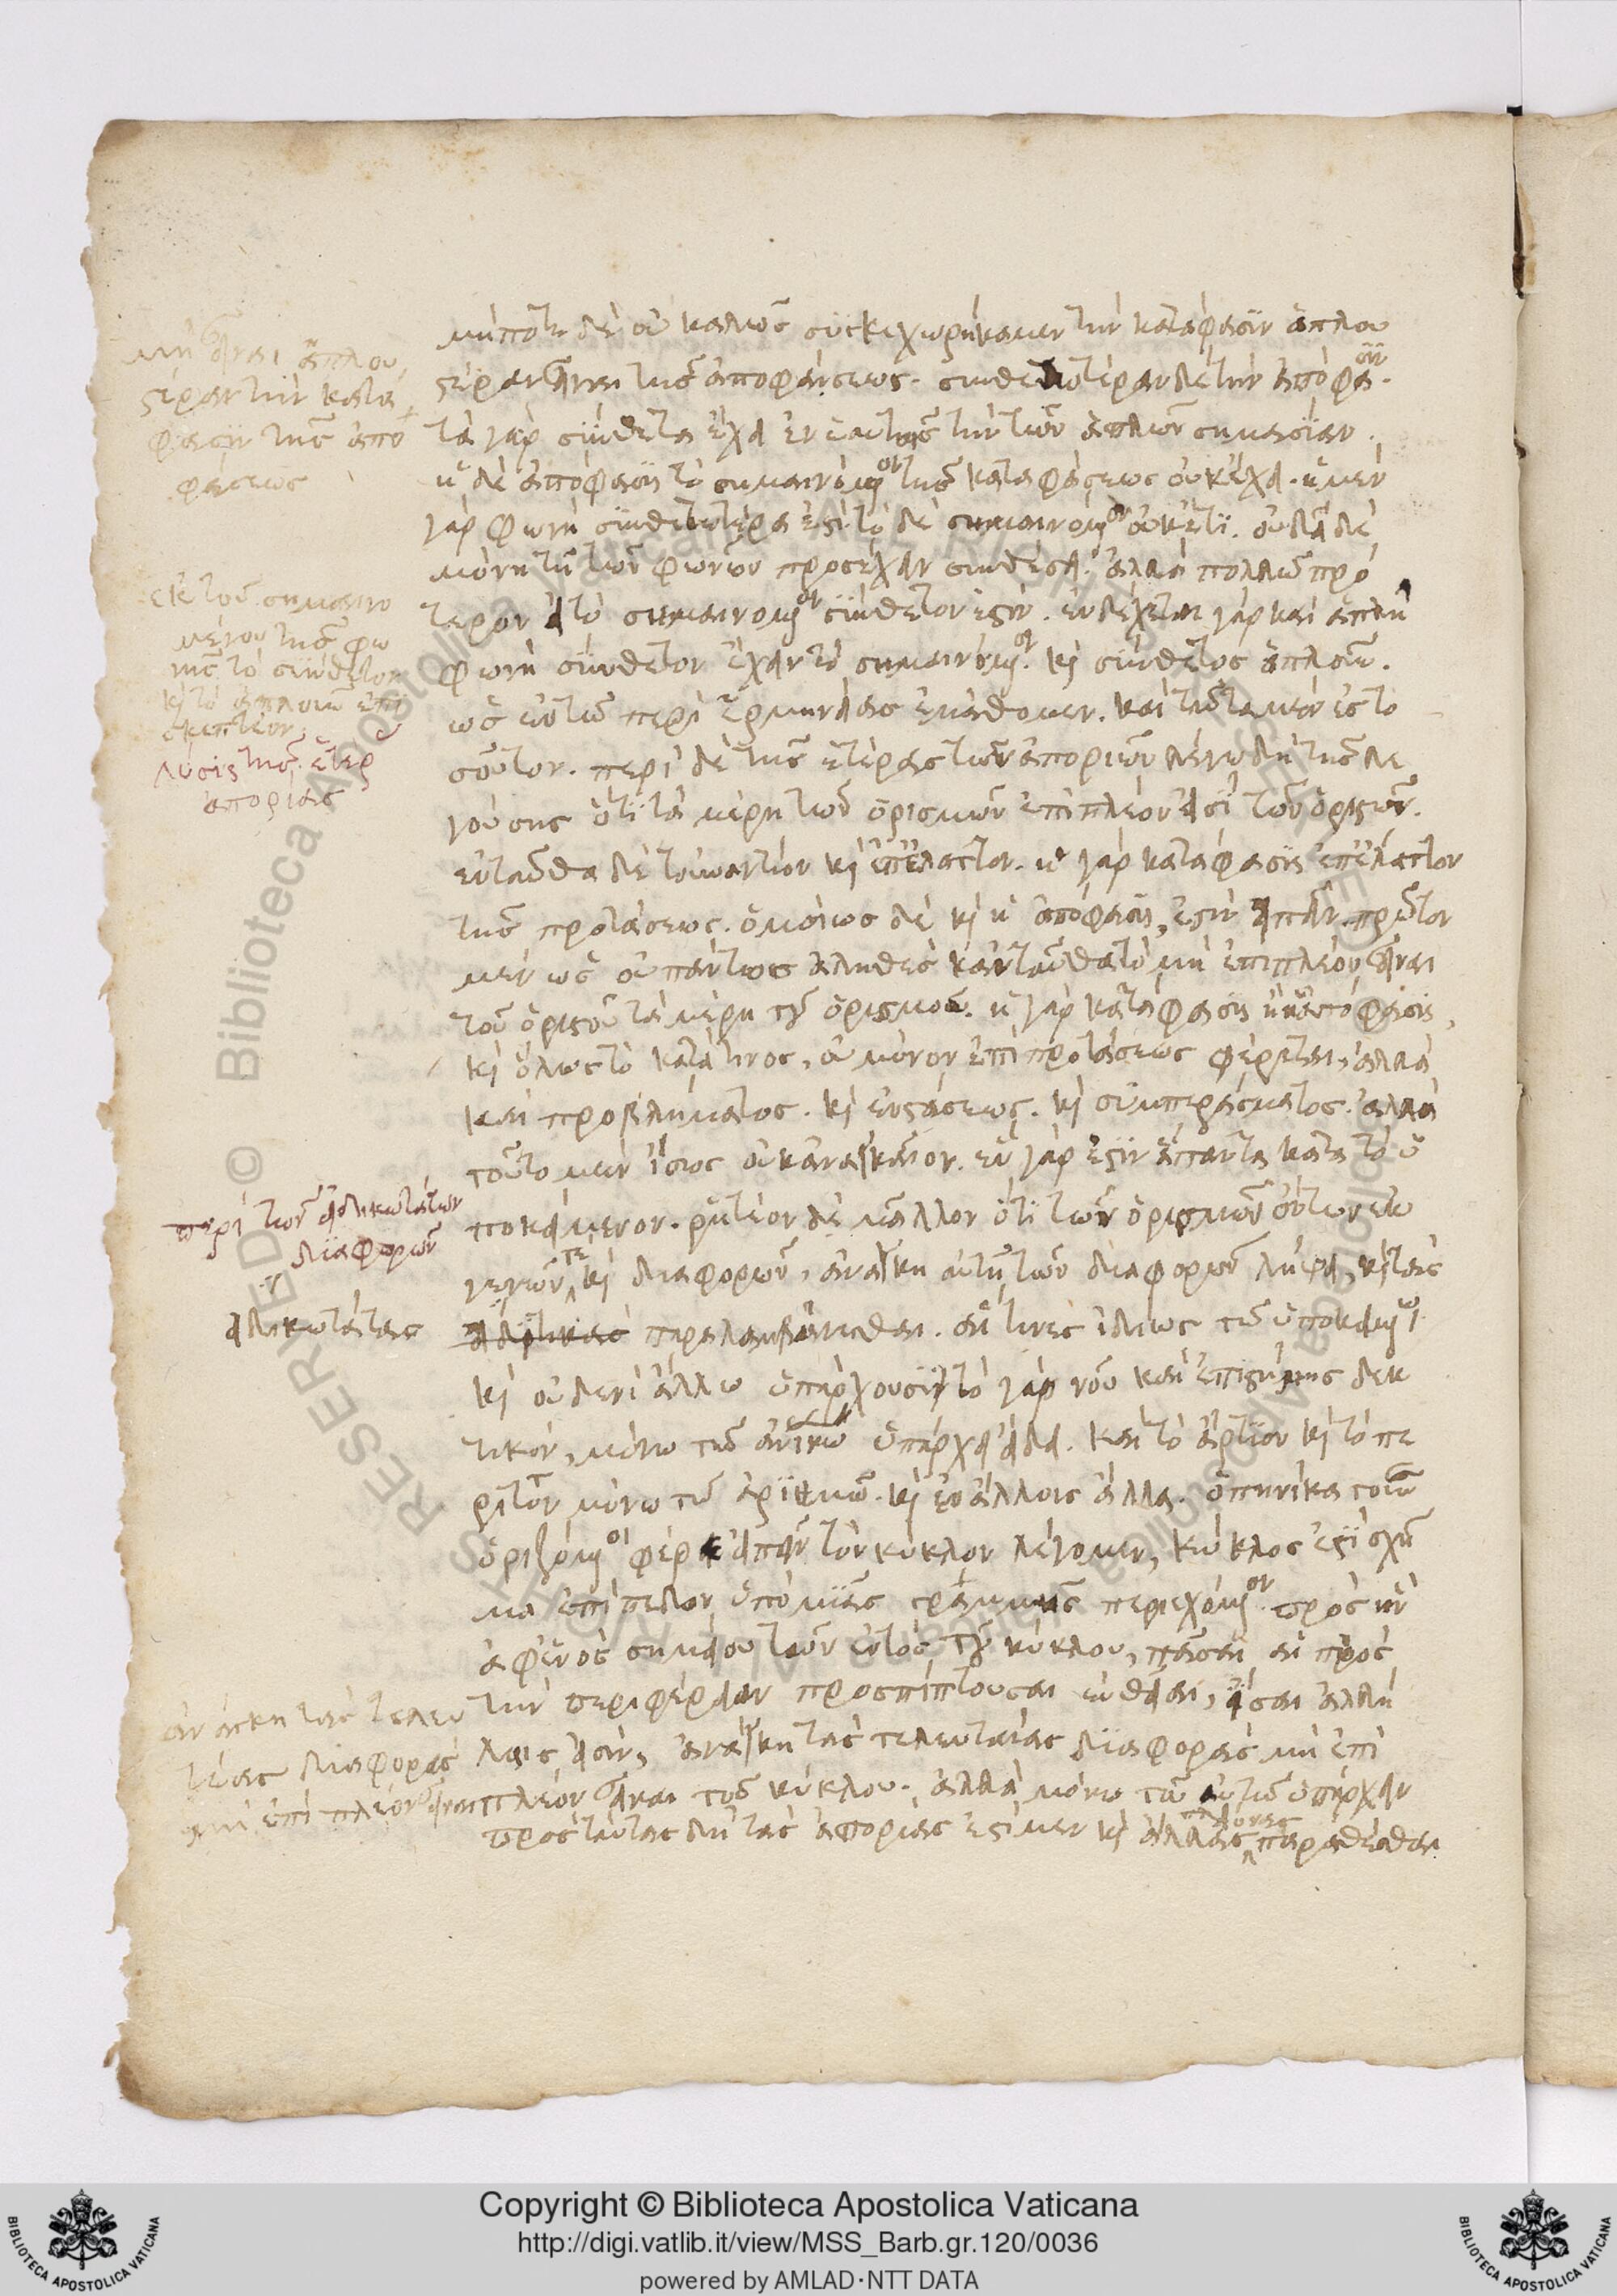 μήποτε δὲ οὐ καλῶς συγκεχωρήκαμεν τὴν κατάφασιν ἁπλου
στέραν εἶναι τῆς ἀποφάσεως. συνθετωτέραν δὲ τὴν ἀπόφασιν.
τὰ γὰρ σύνθετα ἔχει ἐν ἑαυτοῖς τὴν τῶν ἁπλῶν σημασίαν.
ἡ δὲ ἀπόφασις τὸ σημαινόμενον τῆς καταφάσεως οὐκ ἔχει. ἡ μὲν
γὰρ φωνὴ συνθετωτέρα ἐστὶ τὸ δὲ σημαινόμενον οὐκέτι. οὐ δεῖ δὲ
μόνῃ τῇ τῶν φωνῶν προσέχειν συνθέσει. ἀλλὰ πολλῷ πρό
τερον εἰ τὸ σημαινόμενον σύνθετον ἐστίν. ἐνδέχεται γὰρ καὶ ἁπλῆ
φωνὴ σύνθετον ἔχειν τὸ σημαινόμενον. κὶ σύνθετος ἁπλοῦν.
ὡς ἐν τῷ περὶ ἑρμηνείας ἐμάθομεν. καὶ ταῦτα μὲν ἐς το
σοῦτον. περὶ δὲ τῆς ἑτέρας τῶν ἀποριῶν λέγω δὴ τῆς λε
γούσης ὅτι τὰ μέρη τῶν ὁρισμῶν ἐπὶ πλέον εἰσὶ τῶν ὁριστῶν.
ἐνταῦθα δὲ τοὐναντίον κὶ ἐπ' ἔλαττον. ἡ γὰρ κατάφασις ἐπ' ἔλαττον
τῆς προτάσεως. ὁμοίως δὲ κὶ ἡ ἀπόφασις, ἐστὶν εἰπεῖν. πρῶτον
μὲν ὡς οὐ πάντως ἀληθὲς κἀνταῦθα τὸ μὴ ἐπὶ πλέον εἶναι
τοῦ ὁριστοῦ τὰ μέρη τοῦ ὁρισμοῦ. ἡ γὰρ κατάφασις ἢ ἀπόφασις,
κὶ ὅλως τὸ κατά τινος, οὐ μόνον ἐπὶ προτάσεως φέρεται, ἀλλὰ
καὶ προβλήματος. κὶ ἐνστάσεως. κὶ συμπεράσματος. ἀλλὰ
τοῦτο μὲν ἴσως οὐκ ἀναγκαῖον. ἓν γάρ ἐστιν ἅπαντα κατὰ τὸ ὑ
ποκείμενον. ῥητέον δὲ μᾶλλον ὅτι τῶν ὁρισμῶν ὄντων ἐκ
γενῶν τε κὶ διαφορῶν, ἀνάγκη αὐτὴ τῶν διαφορῶν
παραλαμβάνεσθαι. αἵ τινες ἰδίως τῷ ὑποκειμένῳ
κὶ οὐδενὶ ἄλλῳ ὑπάρχουσιν τὸ γὰρ νοῦ καὶ ἐπιστήμης δεκ
τικόν, μόνῳ τῷ ὑπάρχει εἴδει. καὶ τὸ ἄρτιον κὶ τὸ πε
ριττὸν μόνῳ τῷ ἀριθμῷ. κὶ ἐν ἄλλοις ἄλλα. ὁπηνίκα τοίνυν
ὁριζόμενοι φέρε εἰπεῖν τὸν κύκλον λέγομεν, κύκλος ἐστὶ σχῆ
μα ἐπίπεδον ὑπὸ μιᾶς γραμμῆς περιεχόμενον. πρὸς ἣν
ἀφ' ἑνὸς σημείου τῶν ἐντὸς τοῦ κύκλου, πᾶσαι αἱ πρὸς
τὴν περιφέρειαν προσπίπτουσαι εὐθεῖαι, ἴσαι ἀλλή
λαις εἰσίν, ἀνάγκη τὰς τελευταίας διαφορὰς μὴ ἐπὶ
πλέον εἶναι τοῦ κύκλου. ἀλλὰ μόνῳ τῷ αὐτῷ ὑπάρχειν
πρὸς ταύτας δὴ τὰς ἀπορίας ἐστὶ μὲν κὶ ἄλλας πλείονας παραθέσθαι.
μὴ εἶναι ἁπλου
στέραν τὴν κατά
φασιν τῆς ἀπο
φάσεως
ἐκ τοῦ σημαινο
μένου τῆς φω
νῆς τὸ σύνθετον
κὶ τὸ ἁπλοῦν ἐπι
σκεπτέον
λύσις τῆς ἑτέρ
ἀπορίας
περὶ τῶν εἰδικωτάτων
διαφορῶν
εἰδικωτάτας
ἀνάγκη τὰς τελευ
ταίας διαφορὰς
μὴ ἐπὶ πλέον εἶναι
Copyright © Biblioteca Apostolica Vaticana
http://digi.vatlib.it/view/MSS_Barb.gr.120/0036
powered by AMLAD·NTT DATA
BIBLIOTECA APOSTOLICA VATICANA
BIBLIOTECA APOSTOLICA VATICANA